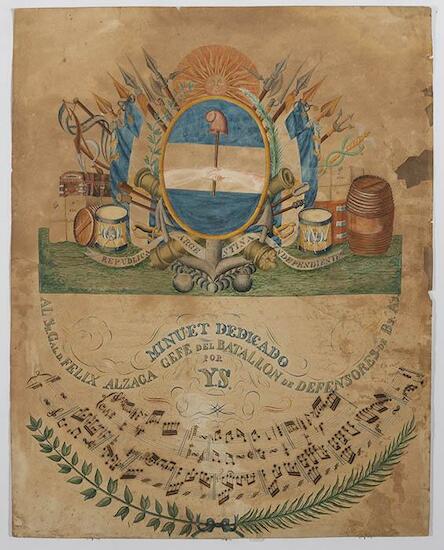 REPUBLICA ARGENTINA INDEPENDIENTE
MINUET DEDICADO
AL Sr. Gral. D. FELIX ALZAGA GEFE DEL BATALLON DE DEFENSORES DE Bs. As.
POR
Y.S.